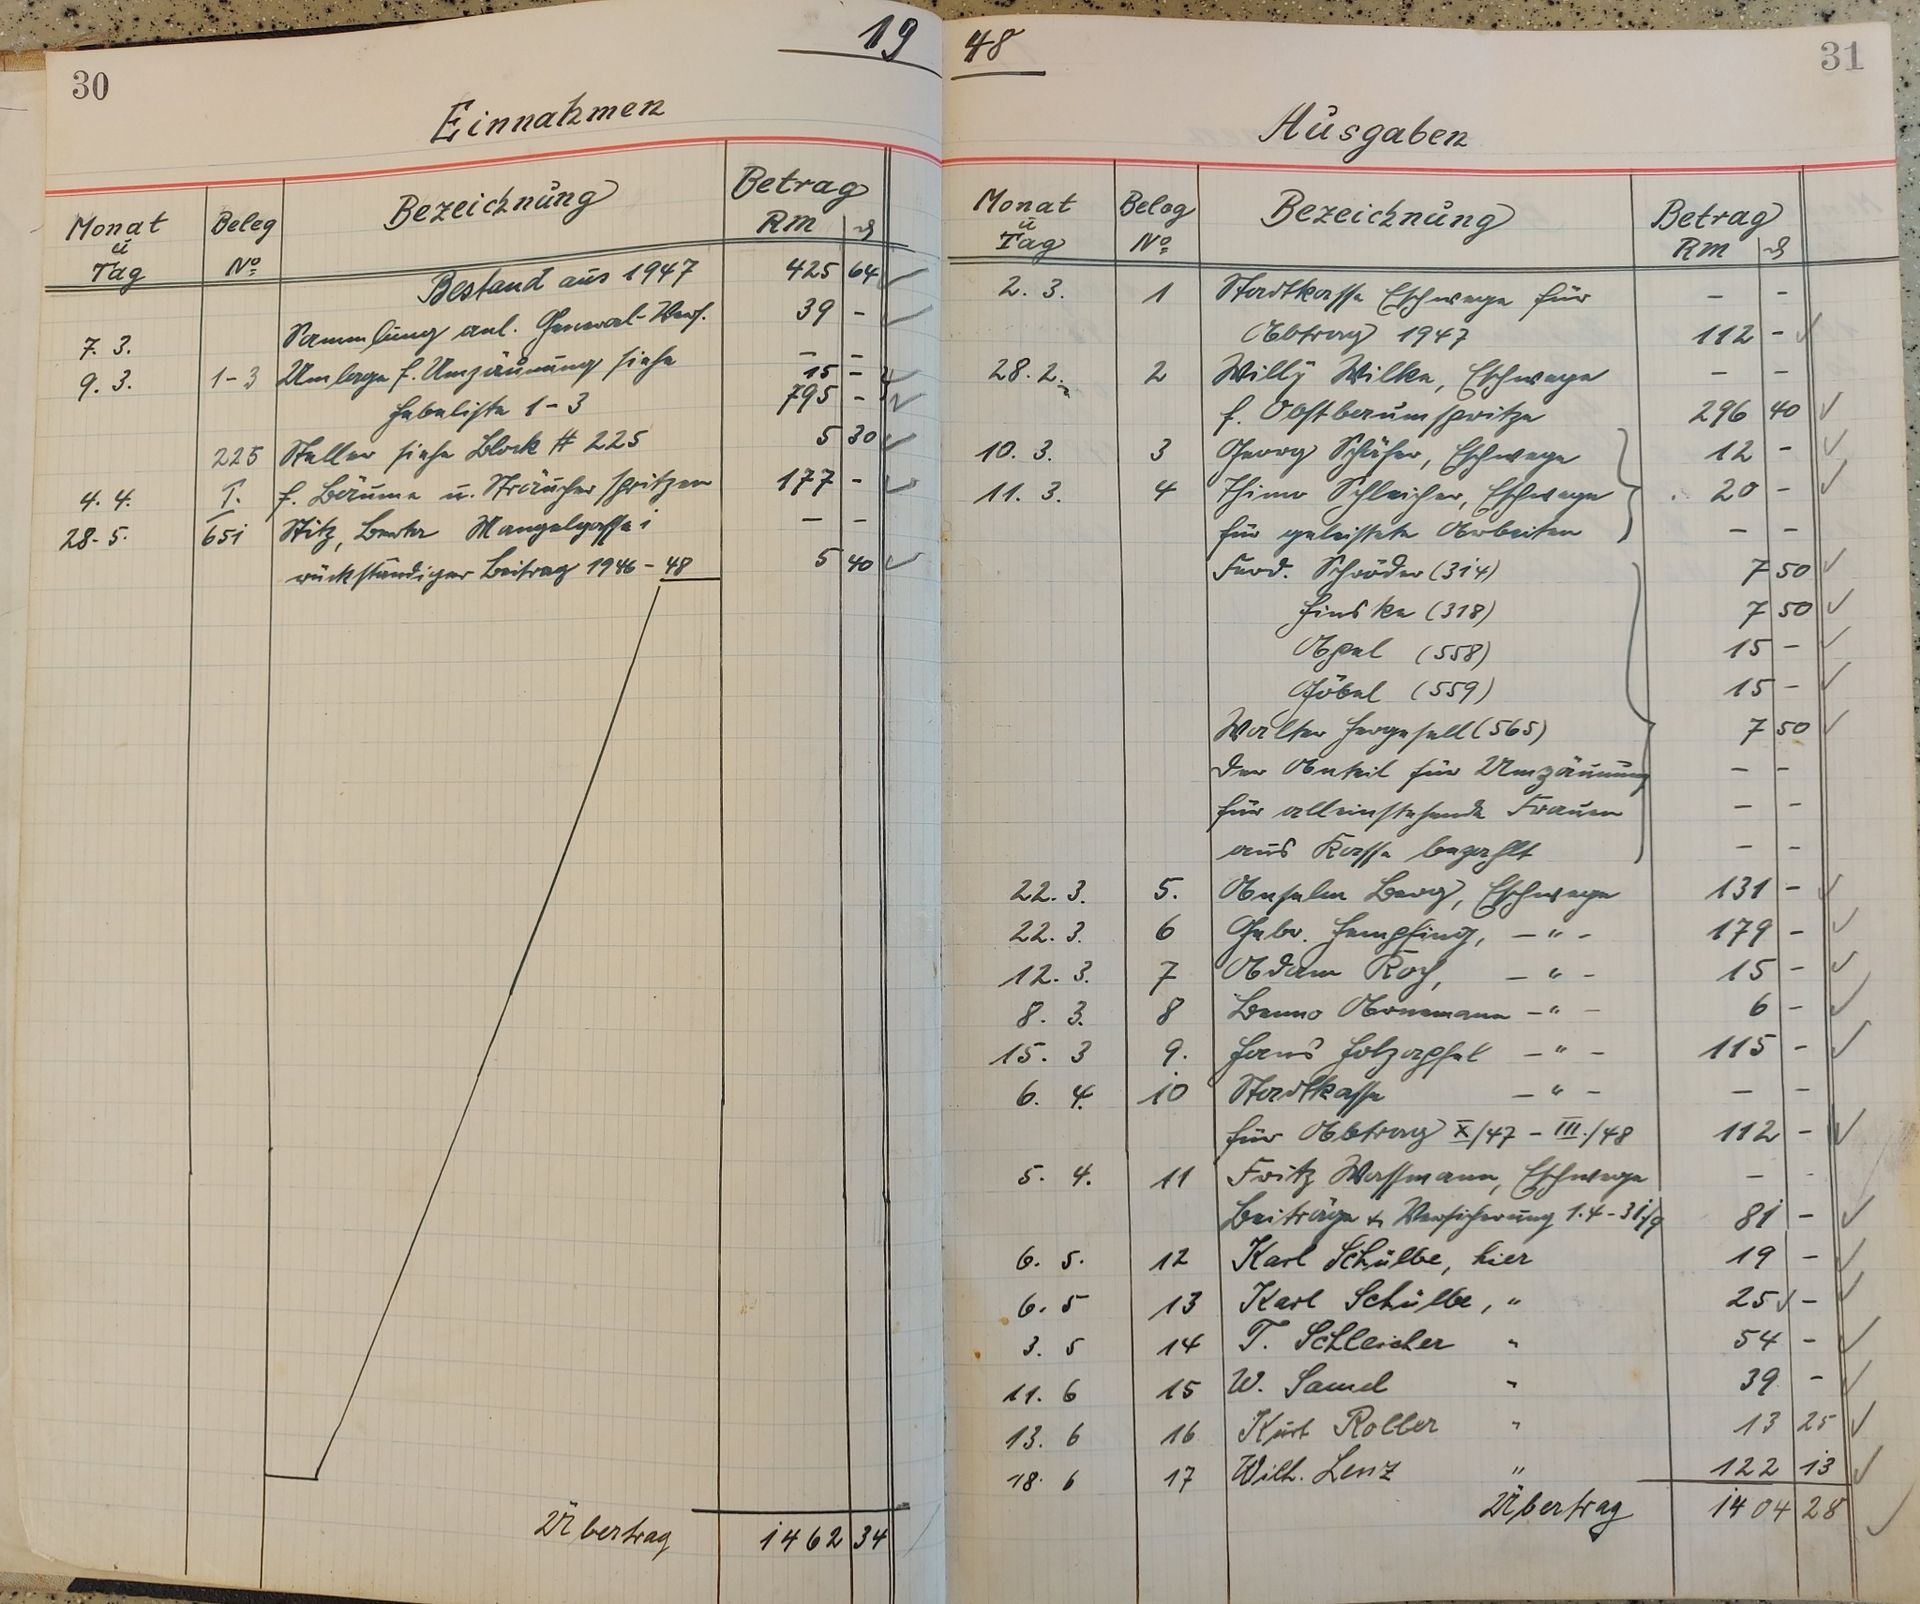 19
30
Einnahmen
Monat u Tag Beleg No Bezeichnung Betrag RM ₰
Bestand aus 1947 425 64
7. 3. Sammlung anl. General-Vers. 39 -
9. 3. 1-3 Umlage f. Umzäunung siehe - -
15 -
Hebeliste 1-3 795 -
225 Steller siehe Block # 225 5 30
4. 4. T. f. Bäume u. Sträucher spritzen 177 -
28. 5. 651 Stitz, Berta Mangelgasse 1 - -
rückständiger Beitrag 1946-48 5 40
Übertrag 1462 34
48
31
Ausgaben
Monat u Tag Beleg No Bezeichnung Betrag RM ₰
2. 3. 1 Stadtkasse Eschwege für - -
Abtrag 1947 112 -
28. 2. 2 Willy Wilke, Eschwege - -
f. Obstbaumspritze 296 40
10. 3. 3 Georg Schäfer, Eschwege 12 -
11. 3. 4 Thimo Schleicher, Eschwege 20 -
für geleistete Arbeiten - -
Ferd. Schröder (314) 7 50
Hinske (318) 7 50
Apel (558) 15 -
Göbel (559) 15 -
Walter Hergesell (565) 7 50
der Anteil für Umzäunung - -
für alleinstehende Frauen - -
aus Kasse bezahlt - -
22. 3. 5. Anselm Berg, Eschwege 131 -
22. 3. 6 Gebr. Hempfing, -"- 179 -
12. 3. 7 Adam Koch, -"- 15 -
8. 3. 8 Benno Arnemann -"- 6 -
15. 3 9. Hans Holzapfel -"- 115 -
6. 4. 10 Stadtkasse -"- - -
für Abtrag X/47 - III./48 112 -
5. 4. 11 Fritz Wassmann, Eschwege - -
Beiträge + Versicherung 1.4-31/9 81 -
6. 5. 12 Karl Schülbe, hier 19 -
6. 5 13 Karl Schülbe, " 25 -
3. 5 14 T. Schleicher " 54 -
11. 6 15 W. Samel " 39 -
13. 6 16 Kurt Roller " 13 25
18. 6 17 Wilh. Lenz " 122 13
Übertrag 1404 28